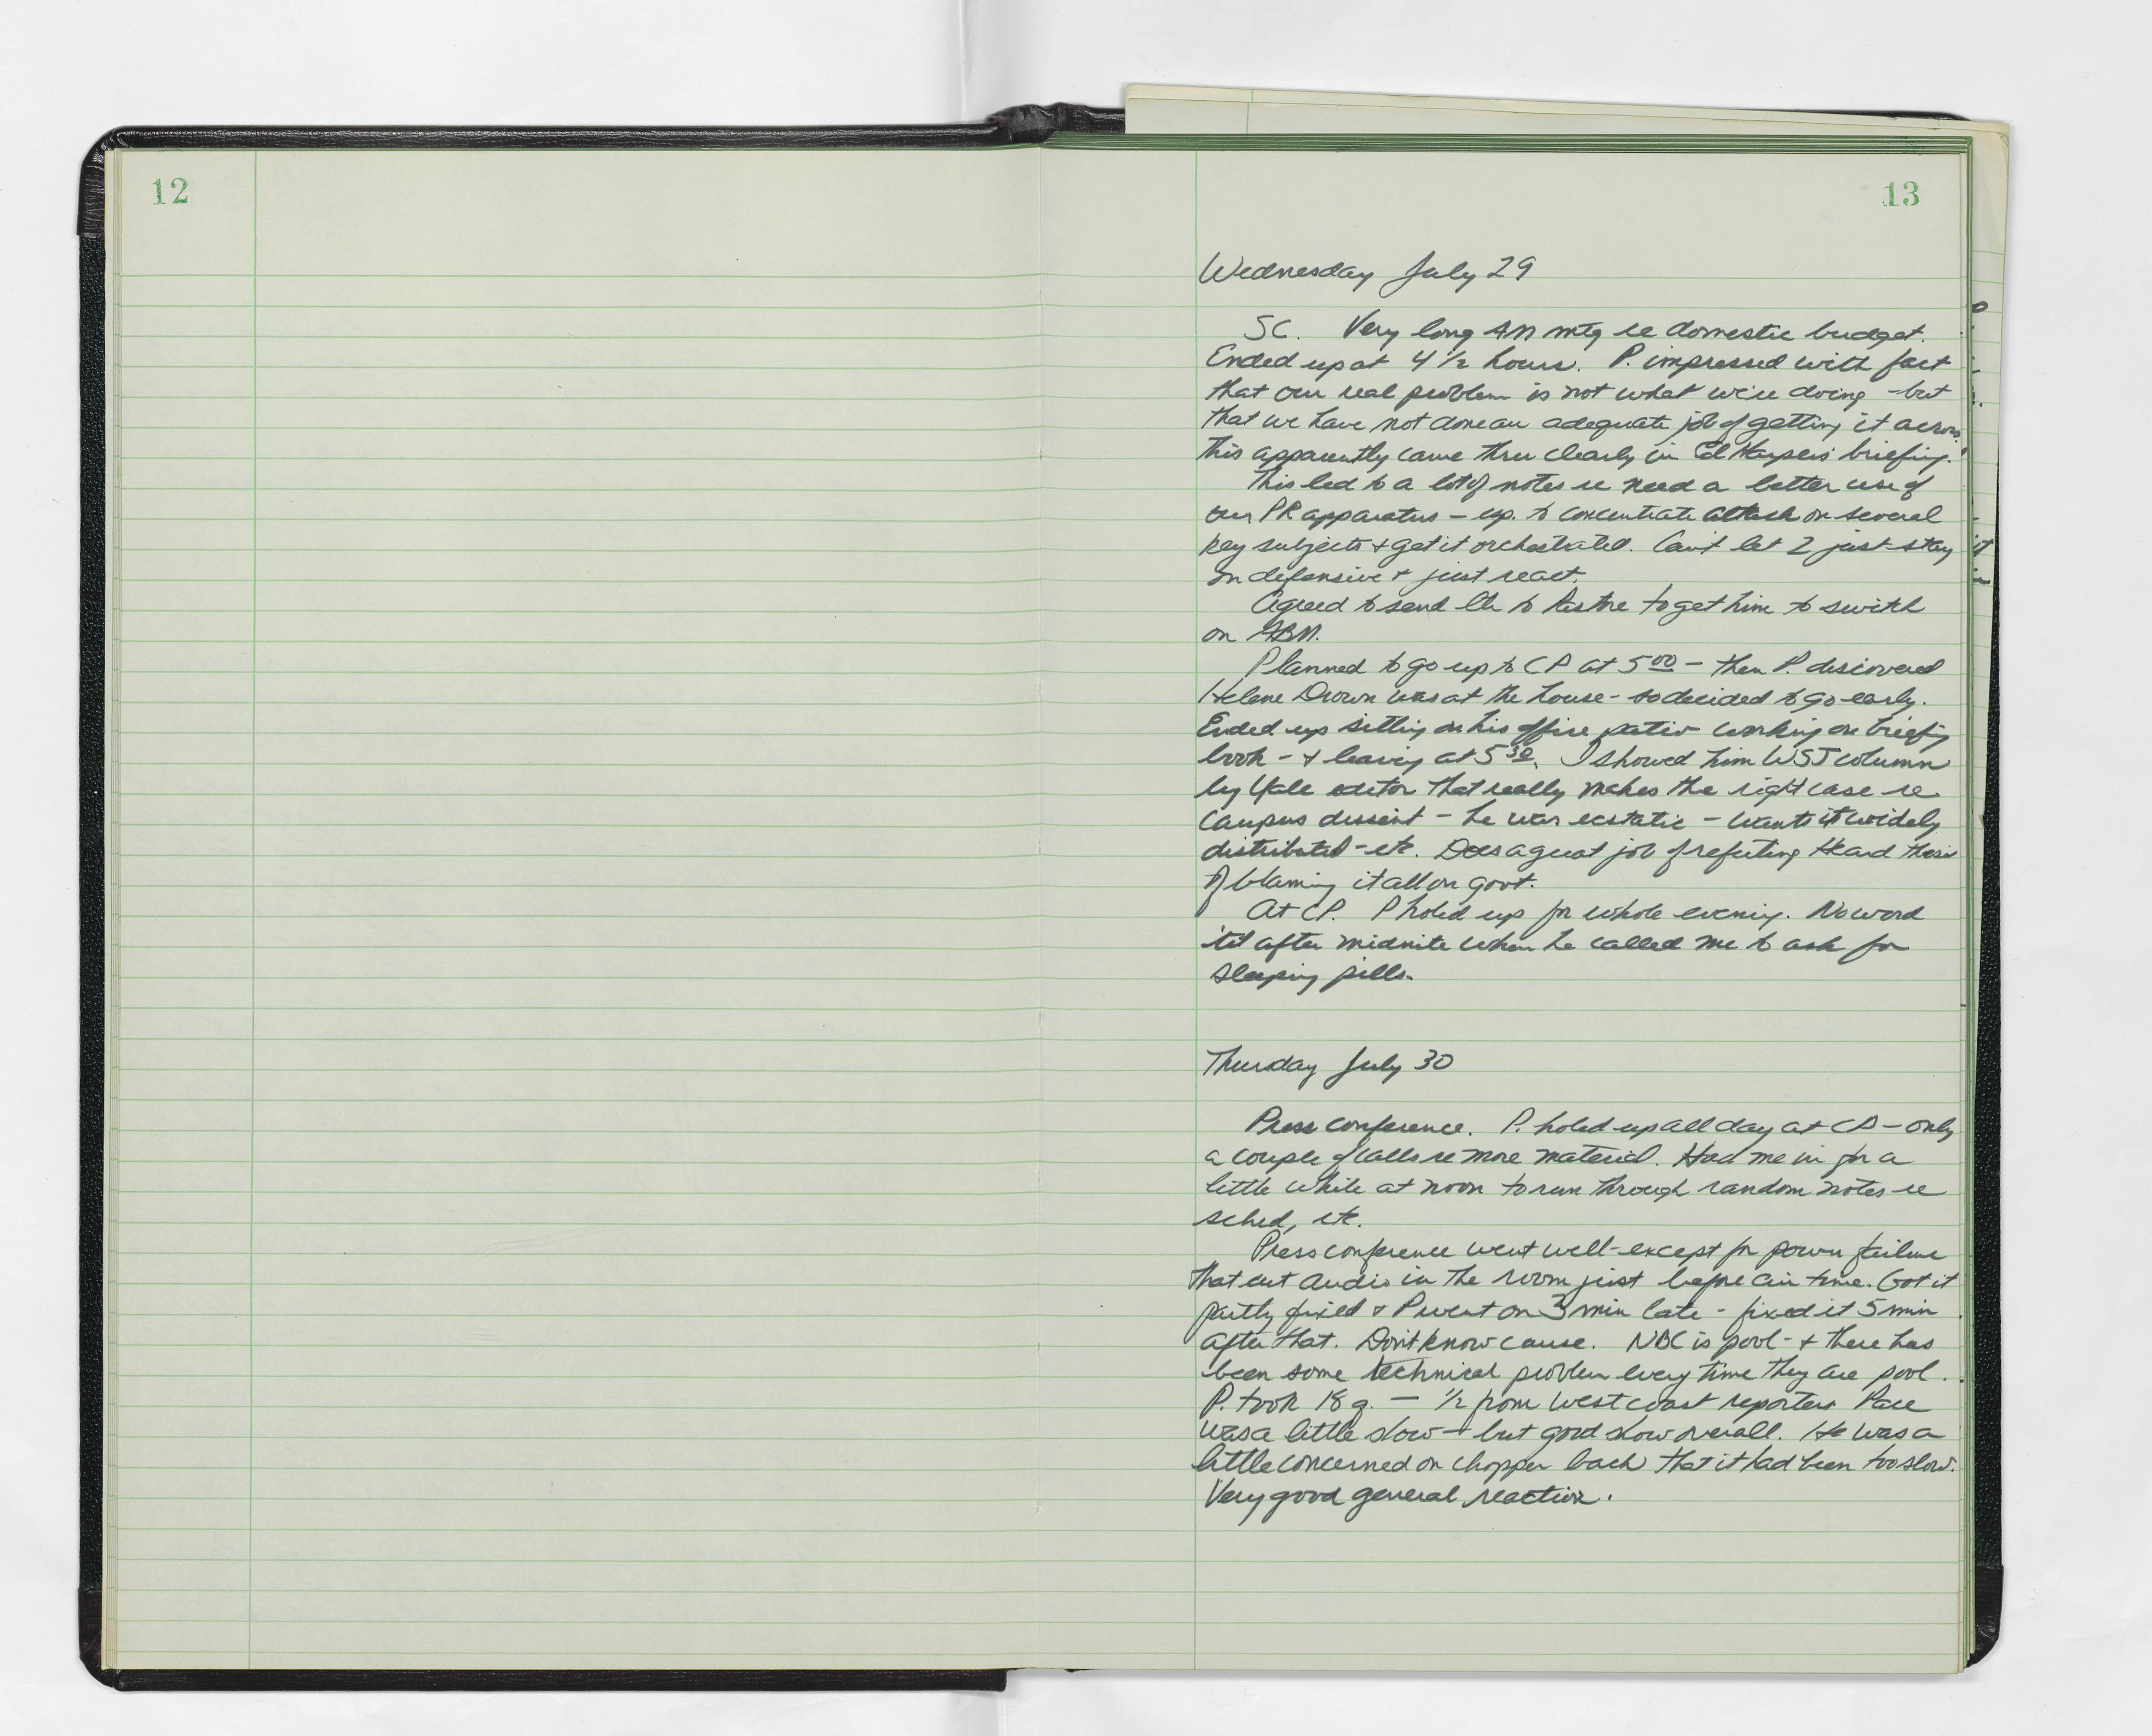 12
13
Wednesday July 29
SC. Very long AM mtg re domestic budget.
Ended up at 4 1/2 hours. P. impressed with fact
that our real problem is not what we're doing - but
that we have not done an adequate job of getting it across.
This apparently came thru clearly in Ed Harper's briefing.
This led to a lot of notes re need a better use of
our PR apparatus - esp. to concentrate attack on several
key subjects + get it orchestrated. Can't let Z just stay
on defensive + just react.
Agreed to send Eh to Pastore to get him to switch
on ABM.
Planned to go up to CP at 5 00 - then P. discovered
Helene Drown was at the house - so decided to go early.
Ended up sitting on his office patio working on briefing
book - + leaving at 5 30. I showed him WSJ column
by Yale editor that really makes the right case re
campus dissent - he was ecstatic - wants it widely
distributed - etc. Does a great job of refuting Heard thesis
of blaming it all on govt.
At CP. P holed up for whole evening. No word
'til after midnite when he called me to ask for
sleeping pills.
Thursday July 30
Press conference. P. holed up all day at CP - only
a couple of calls re more material. Had me in for a
little while at noon to run through random notes re
sched, etc.
Press conference went well - except for power failure
that cut audio in the room just before air time. Got it
partly fixed + P went on 3 min late - fixed it 5 min
after that. Don't know cause. NBC is pool - + there has
been some technical problem every time they are pool.
P. took 18 q. - 1/2 from west coast reporters Pace
was a little slow - but good show overall. He was a
little concerned on chopper back that it had been too slow.
Very good general reaction.